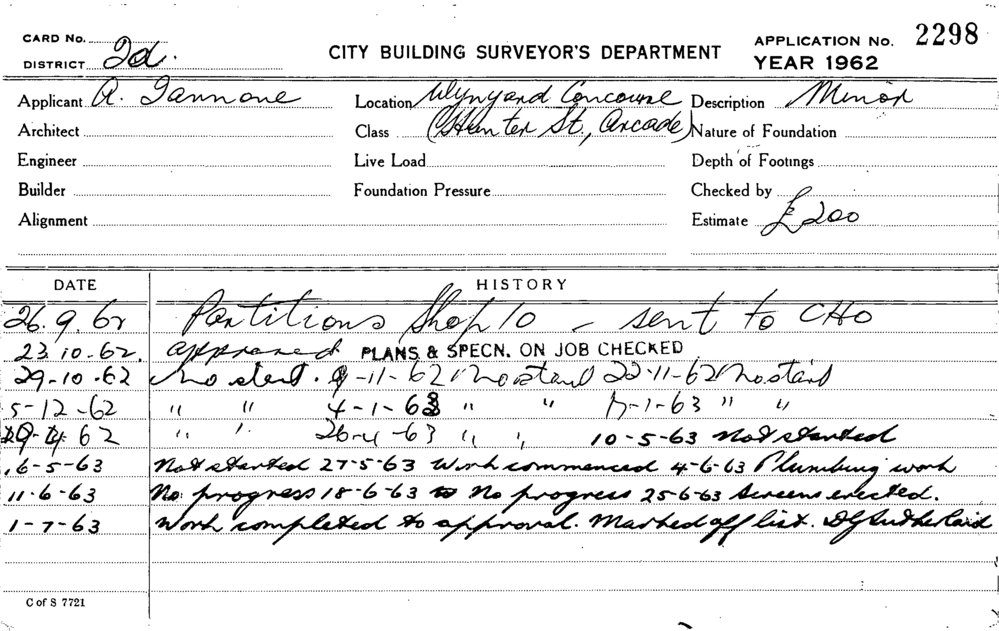 CARD No.
DISTRICT 2d.
CITY BUILDING SURVEYOR'S DEPARTMENT
APPLICATION No. 2298
YEAR 1962
Applicant A. Iannone Location Wynyard Concourse Description Minor
Architect Class (Hunter St., Arcade) Nature of Foundation
Engineer Live Load Depth of Footings
Builder Foundation Pressure Checked by
Alignment Estimate £200
DATE HISTORY
26.9.62 Partitions Shop 10 - sent to CHO
23.10-62. approved PLANS & SPECN. ON JOB CHECKED
29-10-62 No start. 9-11-62 No start 22-11-62 No start
5-12-62 " " 4-1-63 " " -1-63 " "
62 " " 26-4-63 " " 10-5-63 Not started
16-5-63 Not started 27-5-63 Work commenced 4-6-63 Plumbing work
11-6-63 No progress 18-6-63 No progress 25-6-63 Screens erected.
1-7-63 Work completed to approval. Marked off list. DG Sutherland
C of S 7721